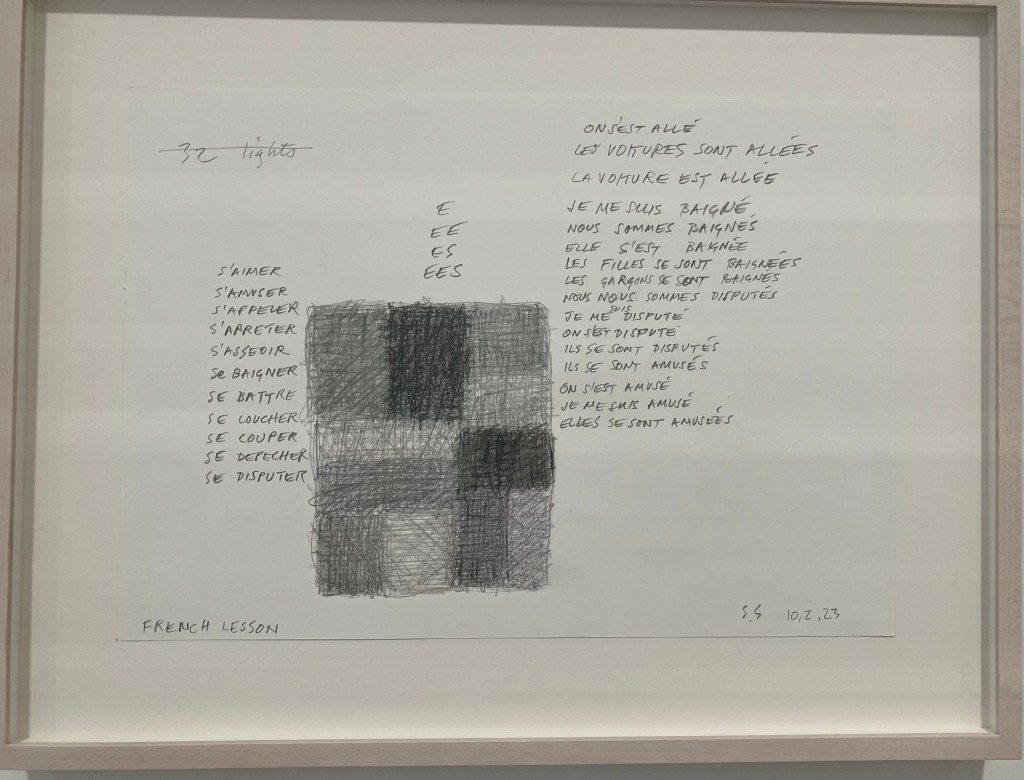 32 lights
E
EE
ES
EES
S'AIMER
S'AMUSER
S'APPELER
S'ARRETER
S'ASSEOIR
Se BAIGNER
SE BATTRE
SE COUCHER
SE COUPER
SE DEPECHER
SE DISPUTER
ON S'EST ALLÉ
LES VOITURES SONT ALLÉES
LA VOITURE EST ALLÉE
JE ME SUIS BAIGNÉ
NOUS SOMMES BAIGNÉS
ELLE S'EST BAIGNÉE
LES FILLES SE SONT BAIGNÉES
LES GARÇONS SE SONT BAIGNÉS
NOUS NOUS SOMMES DISPUTÉS
JE ME SUIS DISPUTÉ
ON S'EST DISPUTÉ
ILS SE SONT DISPUTÉS
ILS SE SONT AMUSÉS
ON S'EST AMUSÉ
JE ME SUIS AMUSÉ
ELLES SE SONT AMUSÉES
FRENCH LESSON
S.S 10,2,23